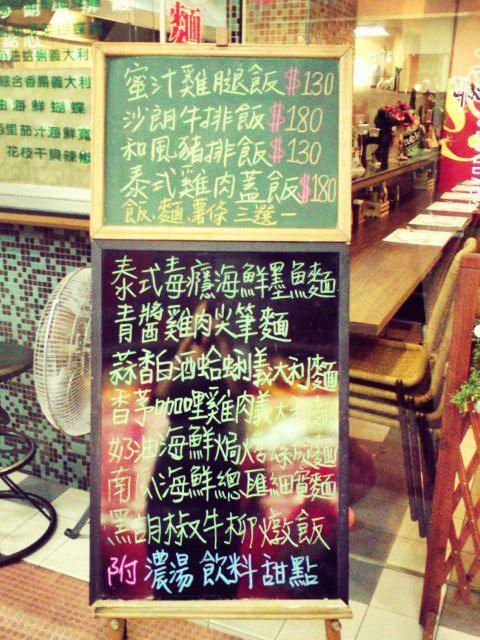 麵
油蛤蜊義大利
綜合香腸義大利
油海鮮蝴蝶
茄汁海鮮寬
花枝干貝辣椒
蜜汁雞腿飯$130
沙朗牛排飯$180
和風豬排飯$130
泰式雞肉蓋飯$180
飯、麵、薯條 三選一
泰式毒癮海鮮墨魚麵
青醬雞肉尖筆麵
蒜香白酒蛤蜊義大利麵
香茅咖哩雞肉義大利麵
奶油海鮮焗烤麵
南瓜海鮮總匯細寬麵
黑胡椒牛柳燉飯
附濃湯 飲料 甜點